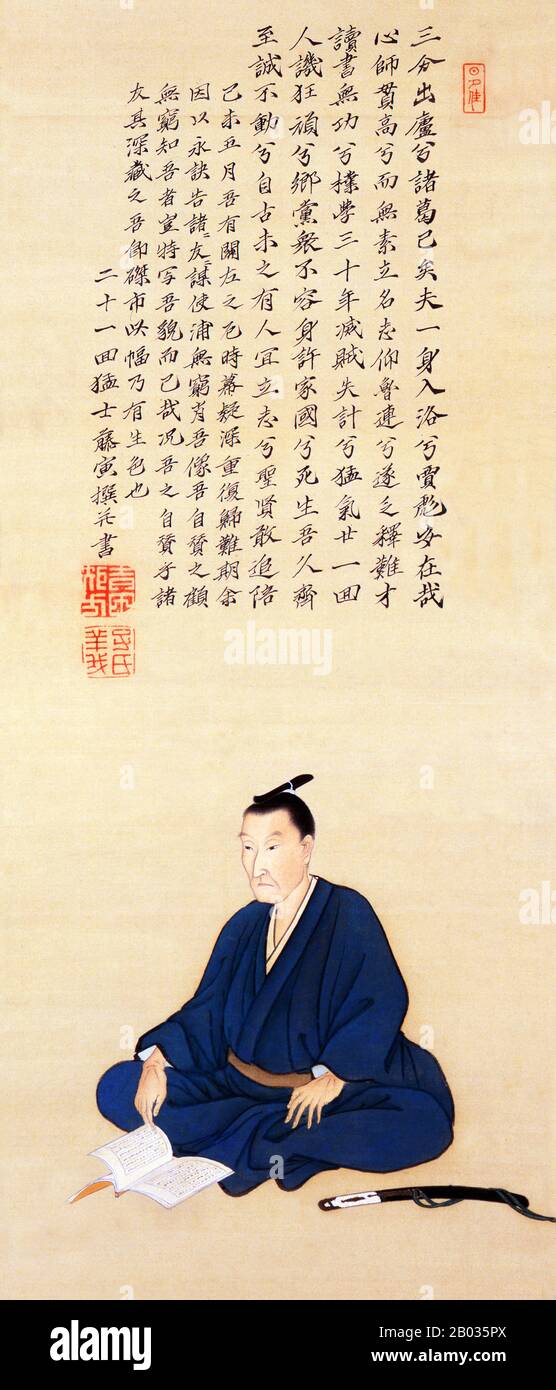 三分出廬兮諸葛已矣夫一身入洛兮賈彪安在哉
心師貫高兮而無素立名志仰魯連兮遂乏釋難才
讀書無功兮樸學三十年滅賊失計兮猛氣廿一回
人譏狂頑兮鄉黨衆不容身許家國兮死生吾久齊
至誠不動兮自古未之有人宜立志兮聖賢敢追陪
己未五月吾有關左之厄時幕疑深重復歸難期余
因以永訣告諸友諸友謀使浦無窮肖吾像吾自贊之顧
無窮知吾者豈特写吾貌而已哉况吾之自贊乎諸
友其深藏之吾即磔市此幅乃有生色也
二十一回猛士藤寅撰并書
alamy
alamy
Image ID: B2035PX
www.alamy.com